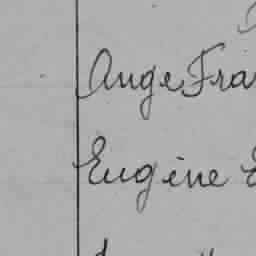 Ange Fra
Eugène E